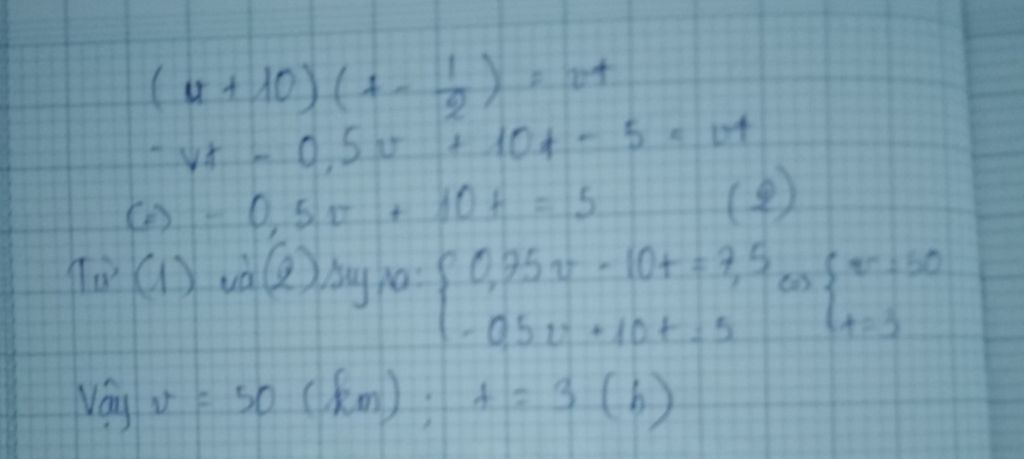 (v + 10)(t - 1/2) = vt
- vt - 0,5v + 10t - 5 = vt
(=) - 0,5v + 10t = 5 (2)
Từ (1) và (2) suy ra: { 0,75v - 10t = 7,5 (=) { v = 50
- 0,5v + 10t = 5 t = 3
Vậy v = 50 (km); t = 3 (h)